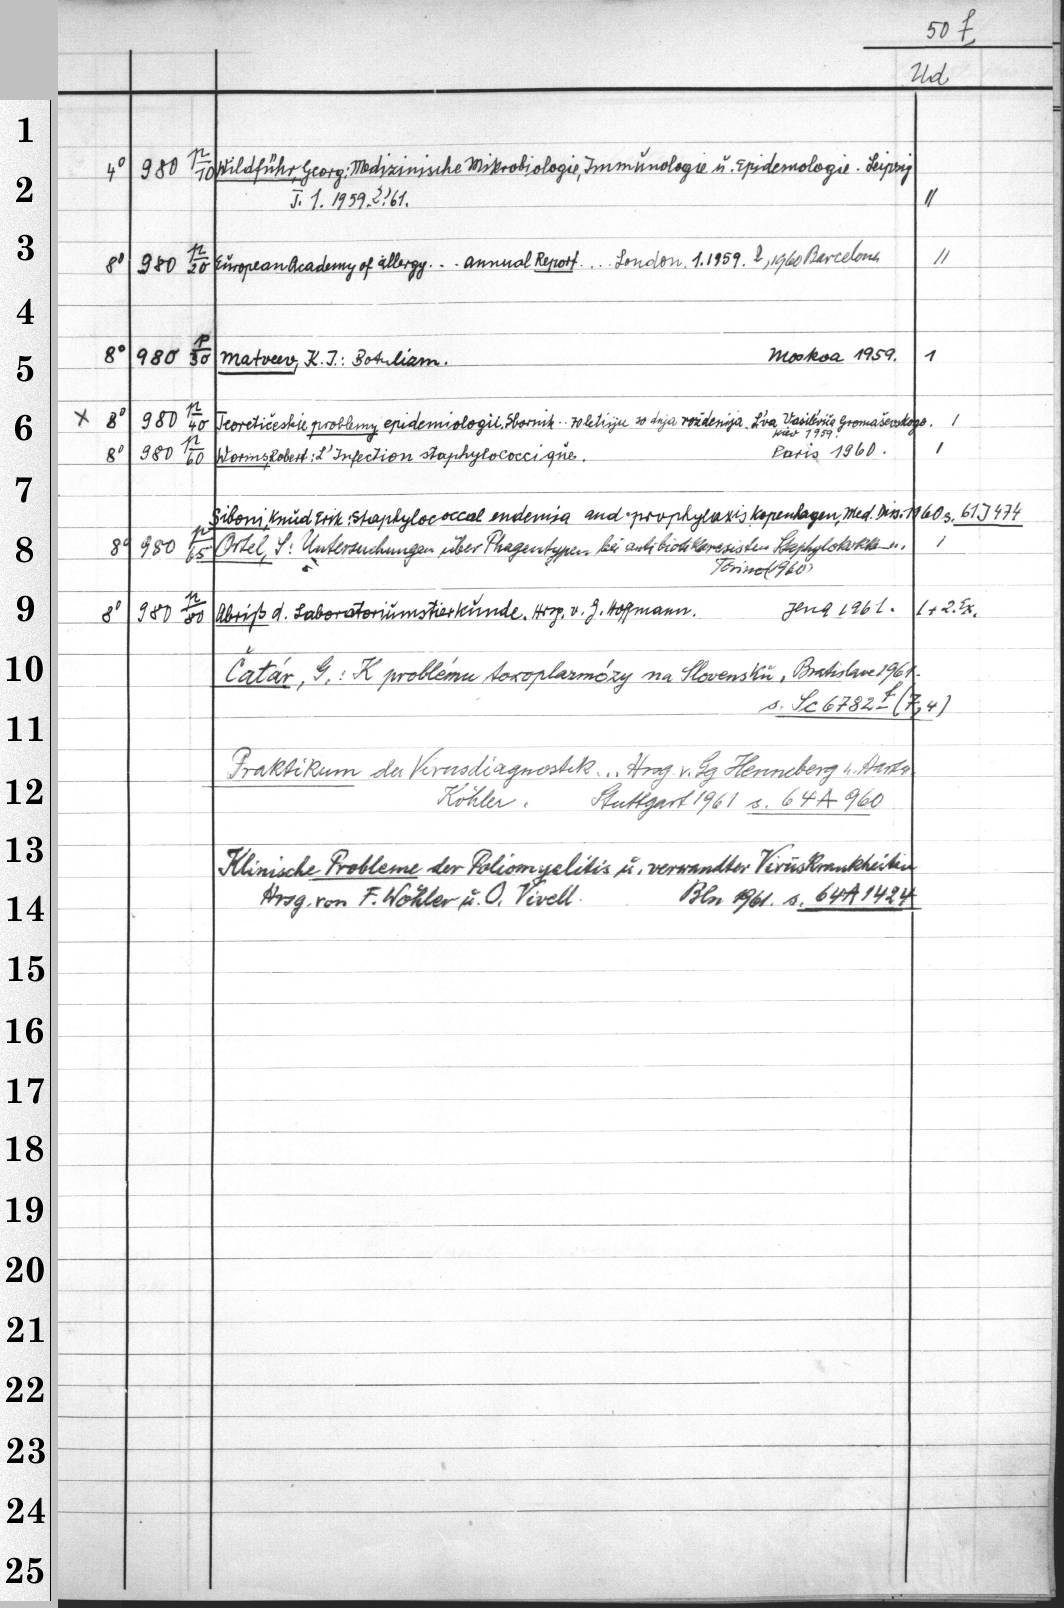 50 f
Ud
1
4° 980 n/10 Wildführ, Georg: Medizinische Mikrobiologie, Immunologie u. Epidemologie. Leipzig
2 I. 1. 1959. 2! 61. II
3 8° 980 n/20 European Academy of allergy... annual Report... London. 1.1959. 2, 1960 Barcelona II
4
5 8° 980 n/30 Matveev, K. I.: Botulizm. Moskva 1959. 1
6 x 8° 980 n/40 Teoretičeskie problemy epidemiologii. Sbornik... 70 letiju so dnja roždenija L'va Vasil'eviča Gromaševskogo. 1
Kiev 1959.
8° 980 n/60 Worms, Robert: L'Infection staphylococcique. Paris 1960. 1
7
Siboni, Knud Erik: Staphylococcal endemia and prophylaxis Kopenhagen, Med. Diss. 1960 s. 61 J 474
8 8° 980 n/65 Ortel, S: Untersuchungen über Phagentypen bei antibiotikaresisten Staphylokokken. 1
Torino (1960)
9 8° 980 n/80 Abriß d. Laboratoriumstierkunde. Hrsg. v. G. Hoffmann. Jena 1961. 1 + 2. Ex.
10 Čatár, G.: K problému toxoplazmózy na Slovensku, Bratislava 1961.
s. Sc 6782 f (7,4)
11
Praktikum der Virusdiagnostik... Hrsg. v. Gg Henneberg u.
12 Köhler. Stuttgart 1961 s. 64 A 960
13
Klinische Probleme der Poliomyelitis u. verwandter Viruskrankheiten
14 Hrsg. von F. Wöhler u. O. Vivell. Bln 1961. s. 64 A 1424
15
16
17
18
19
20
21
22
23
24
25